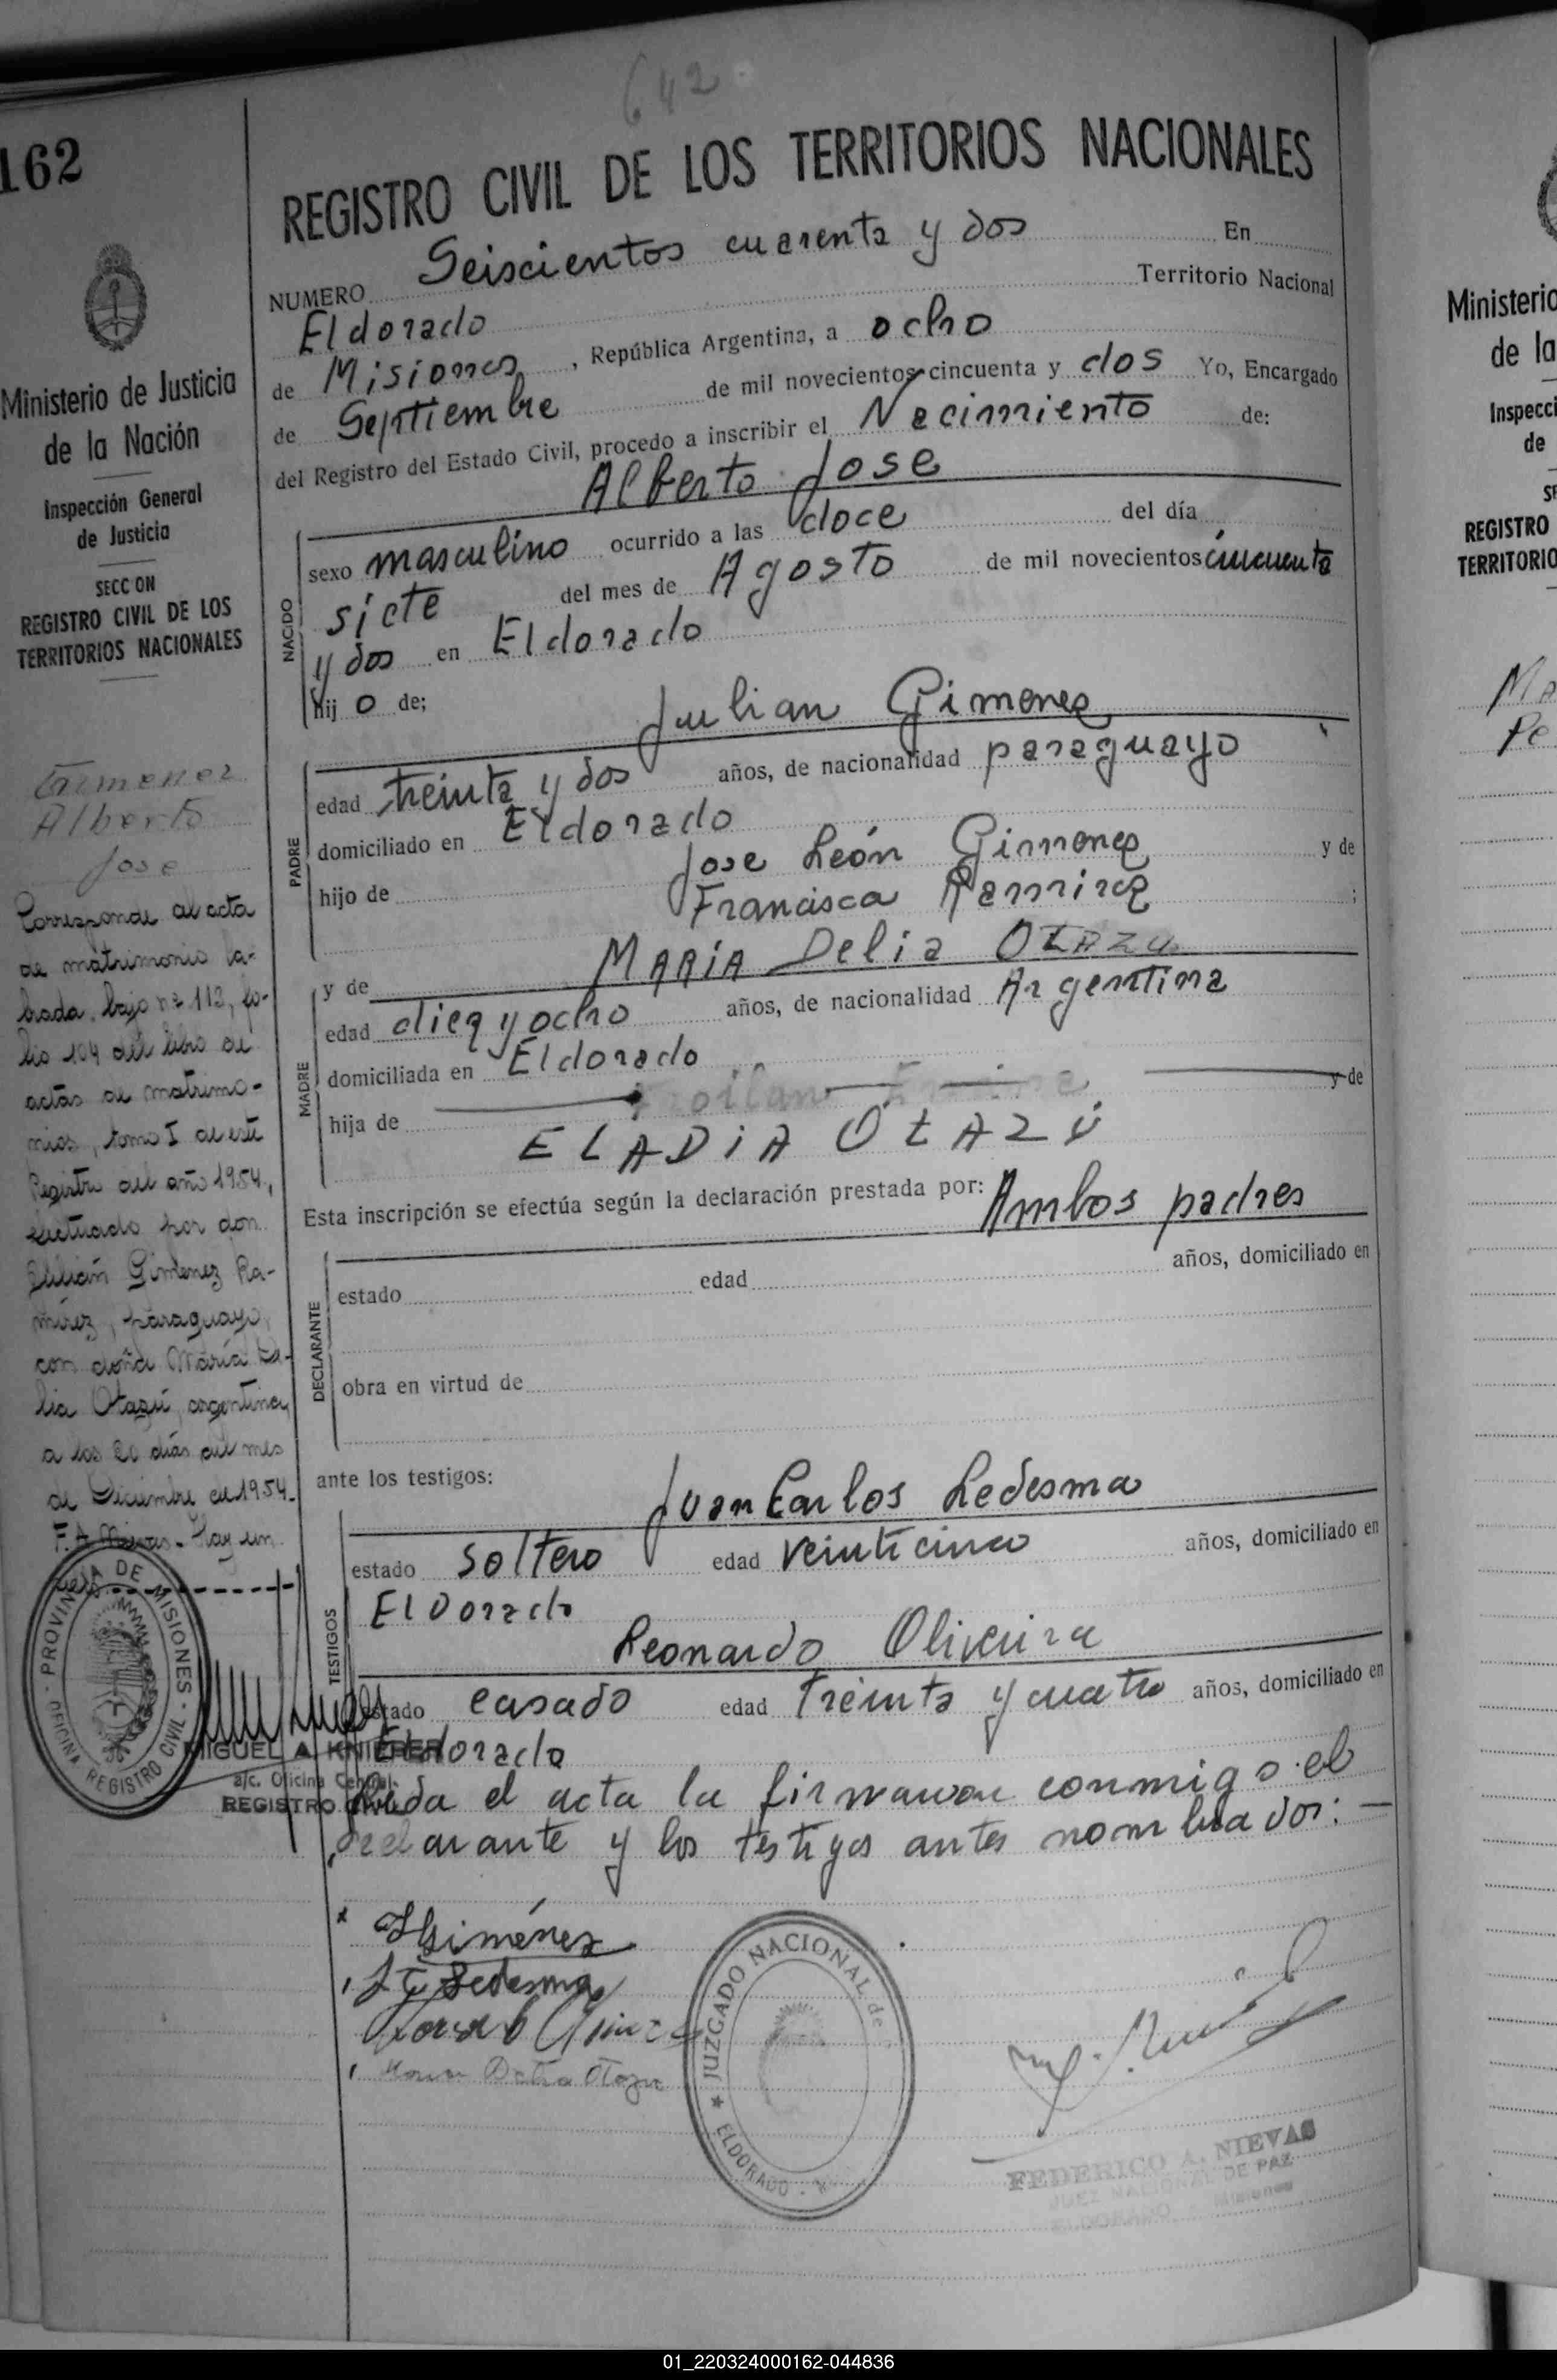 642
162
REGISTRO CIVIL DE LOS TERRITORIOS NACIONALES
NUMERO Seiscientos cuarenta y dos En
Eldorado Territorio Nacional
de Misiones, República Argentina, a ocho
de Septiembre de mil novecientos cincuenta y dos Yo, Encargado
del Registro del Estado Civil, procedo a inscribir el Nacimiento de:
Alberto Jose
NACIDO
sexo masculino ocurrido a las doce del día
siete del mes de Agosto de mil novecientos cincuenta
y dos en Eldorado
hij o de;
Julian Gimenez
PADRE
edad treinta y dos años, de nacionalidad paraguayo
domiciliado en Eldorado
hijo de Jose León Gimenez y de
Francisca Ramirez ;
MADRE
y de MARIA Delia OtAZu
edad diez y ocho años, de nacionalidad Argentina
domiciliada en Eldorado
hija de y de
ELADiA OtAZÚ
Esta inscripción se efectúa según la declaración prestada por: Ambos padres
DECLARANTE
estado edad años, domiciliado en
obra en virtud de
ante los testigos:
Juan Carlos Ledesma
TESTIGOS
estado soltero edad veinticinco años, domiciliado en
ElDorado
Leonardo Oliveira
estado casado edad treinta y cuatro años, domiciliado en
Eldorado
Leida el acta la firmaron conmigo el
declarante y los testigos antes nombrados:
Giménez
Ledesma
Maria Delia Otazu
JUZGADO NACIONAL de
ELDORADO
FEDERICO A. NIEVAS
JUEZ NACIONAL DE PAZ
ELDORADO Misiones
Ministerio de Justicia
de la Nación
Inspección General
de Justicia
SECCION
REGISTRO CIVIL DE LOS
TERRITORIOS NACIONALES
Gimenez
Alberto
Jose
Corresponde al acta
de matrimonio la-
brada bajo nº 112, fo-
lio 104 del libro de
actas de matrimo-
nios, tomo I de este
Registro del año 1954,
efectuado por don
Julián Gimenez Ra-
mírez, paraguayo,
con doña María De-
lia Otazú, argentina,
a los 20 días del mes
de Diciembre de 1954.
F. A. Nievas - Hay un
sello
PROVINCIA DE MISIONES
OFICINA REGISTRO CIVIL
MIGUEL A. KNIEPER
a/c. Oficina Central
REGISTRO CIVIL
Ministerio
de la
Inspecci
de
REGISTRO
TERRITORIO
01_220324000162-044836